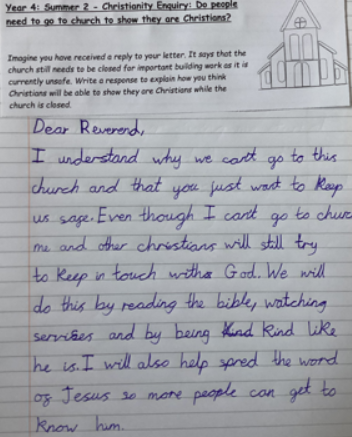 Year 4: Summer 2 - Christianity Enquiry: Do people
need to go to church to show they are Christians?
Imagine you have received a reply to your letter. It says that the
church still needs to be closed for important building work as it is
currently unsafe. Write a response to explain how you think
Christians will be able to show they are Christians while the
church is closed.
Dear Reverend,
I understand why we can't go to this
church and that you just want to keep
us sage. Even though I can't go to churc
me and other christians will still try
to keep in touch with God. We will
do this by reading the bible, watching
services and by being kind kind like
he is. I will also help spred the word
og Jesus so more people can get to
know him.